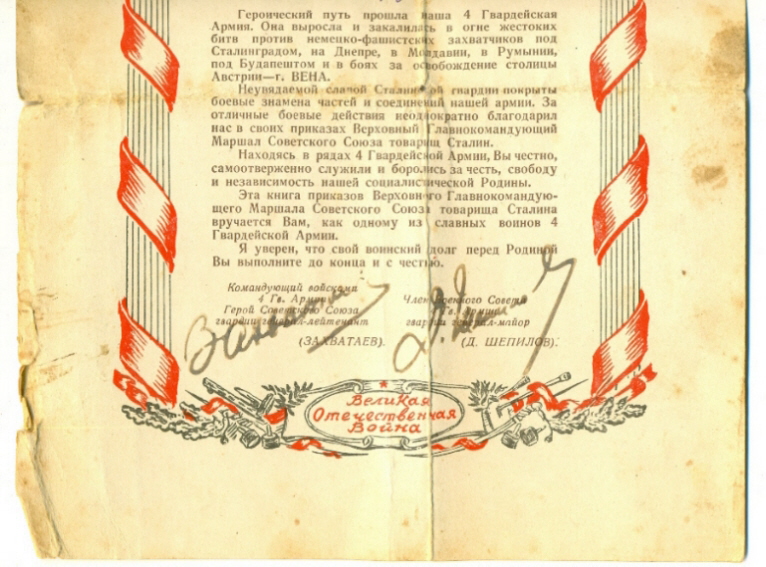 Героический путь прошла наша 4 Гвардейская
Армия. Она выросла и закалилась в огне жестоких
битв против немецко-фашистских захватчиков под
Сталинградом, на Днепре, в Молдавии, в Румынии,
под Будапештом и в боях за освобождение столицы
Австрии—г. ВЕНА.
Неувядаемой славой Сталинской гвардии покрыты
боевые знамена частей и соединений нашей армии. За
отличные боевые действия неоднократно благодарил
нас в своих приказах Верховный Главнокомандующий
Маршал Советского Союза товарищ Сталин.
Находясь в рядах 4 Гвардейской Армии, Вы честно,
самоотверженно служили и боролись за честь, свободу
и независимость нашей социалистической Родины.
Эта книга приказов Верховного Главнокомандую-
щего Маршала Советского Союза товарища Сталина
вручается Вам, как одному из славных воинов 4
Гвардейской Армии.
Я уверен, что свой воинский долг перед Родиной
Вы выполните до конца и с честью.
Командующий войсками
4 Гв. Армии
Герой Советского Союза
гвардии генерал-лейтенант
(ЗАХВАТАЕВ).
Член Военного Совета
4 Гв. Армии
гвардии генерал-майор
(Д. ШЕПИЛОВ).
Великая
Отечественная
Война